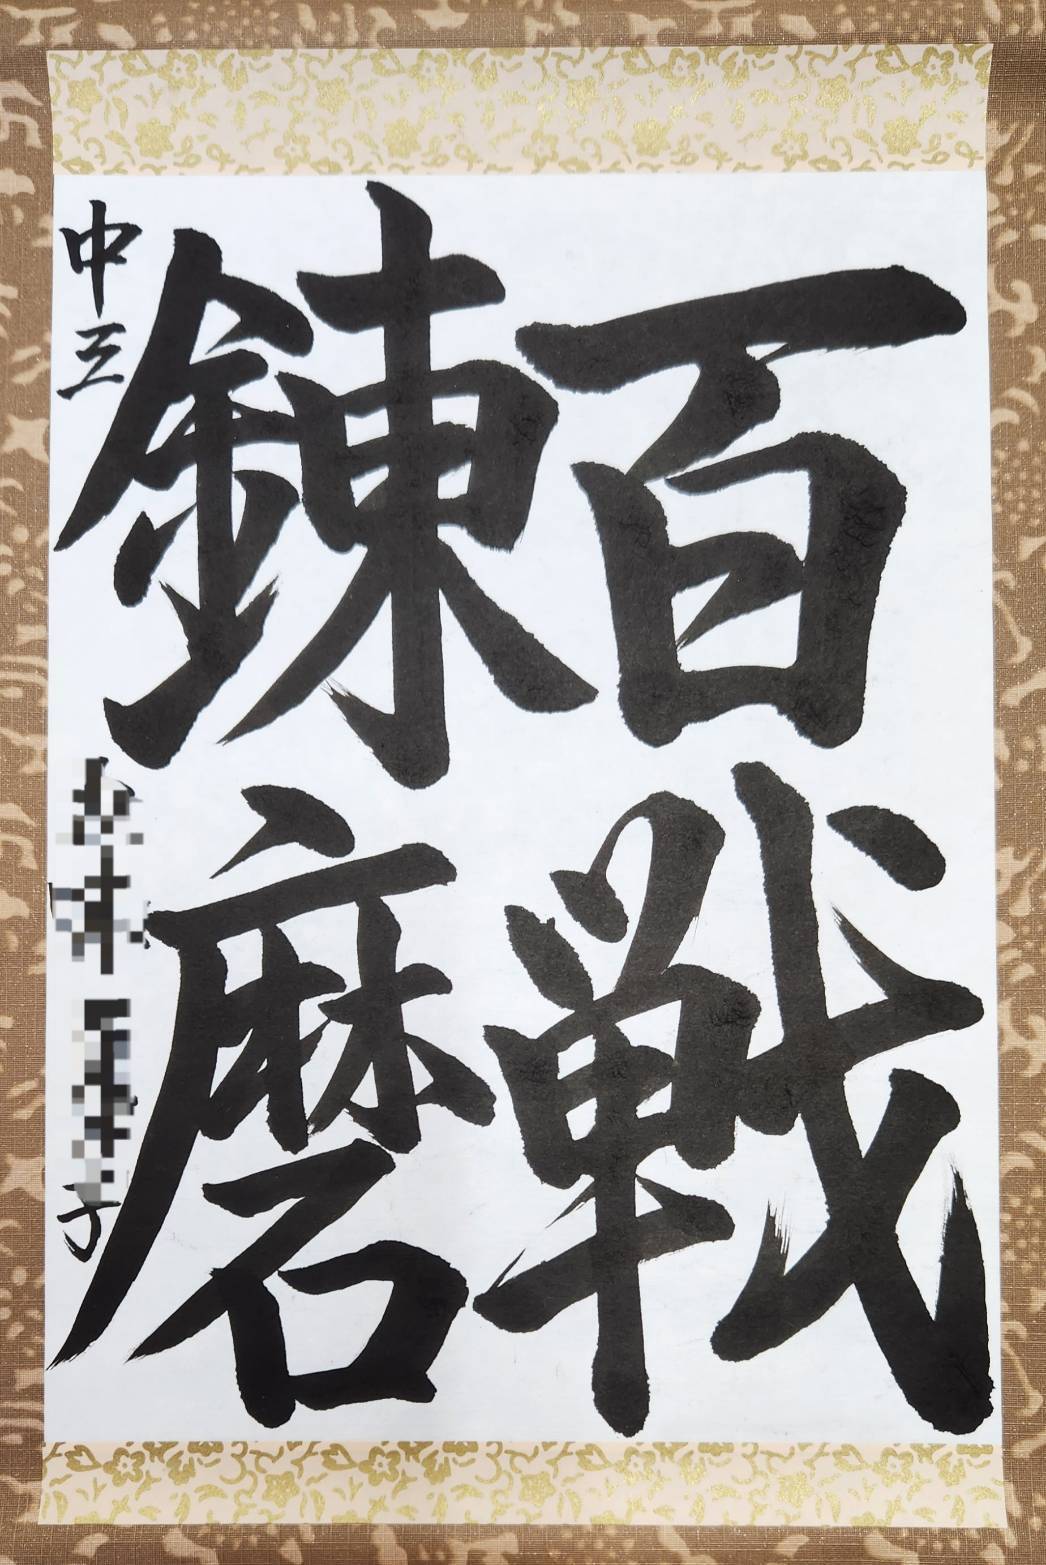 百戦
錬磨
中三
子